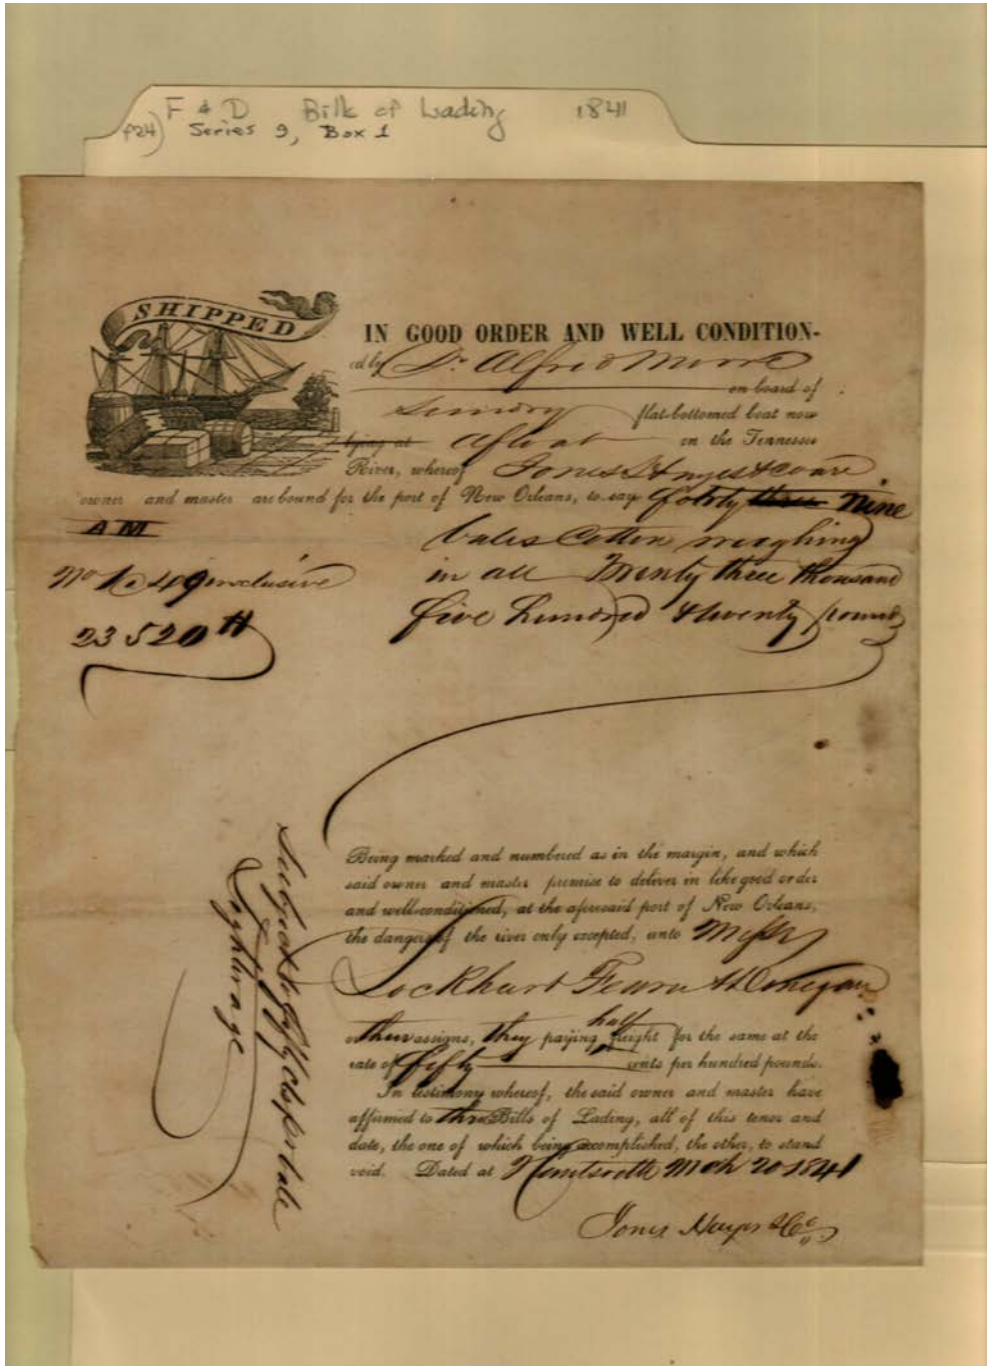 F & D Bills of Lading 1841
p24) Series 9, Box 1
SHIPPED
IN GOOD ORDER AND WELL CONDITION-
ed by Dr. Alfred Moore
on board of
flat-bottomed boat now
lying at Afloat on the Tennessee
River, whereof Jones Hayes & Co are
owner and master are bound for the port of New Orleans, to say forty three nine
AM
bales Cotton weighing
No 1 to 49 inclusive
in all Twenty three thousand
23520 lb
five hundred & twenty pounds
Being marked and numbered as in the margin, and which
said owner and master promise to deliver in like good order
and well-conditioned, at the aforesaid port of New Orleans,
the dangers of the river only excepted, unto Messrs
Lockhart Fearn & Donegan
or their assigns, they paying half freight for the same at the
rate of fifty cents per hundred pounds.
In testimony whereof, the said owner and master have
affirmed to three Bills of Lading, all of this tenor and
date, the one of which being accomplished, the other, to stand
void. Dated at Huntsville Mch 20 1841
Jones Hayes & Co
Subject to fifty cts per bale
Lightwage